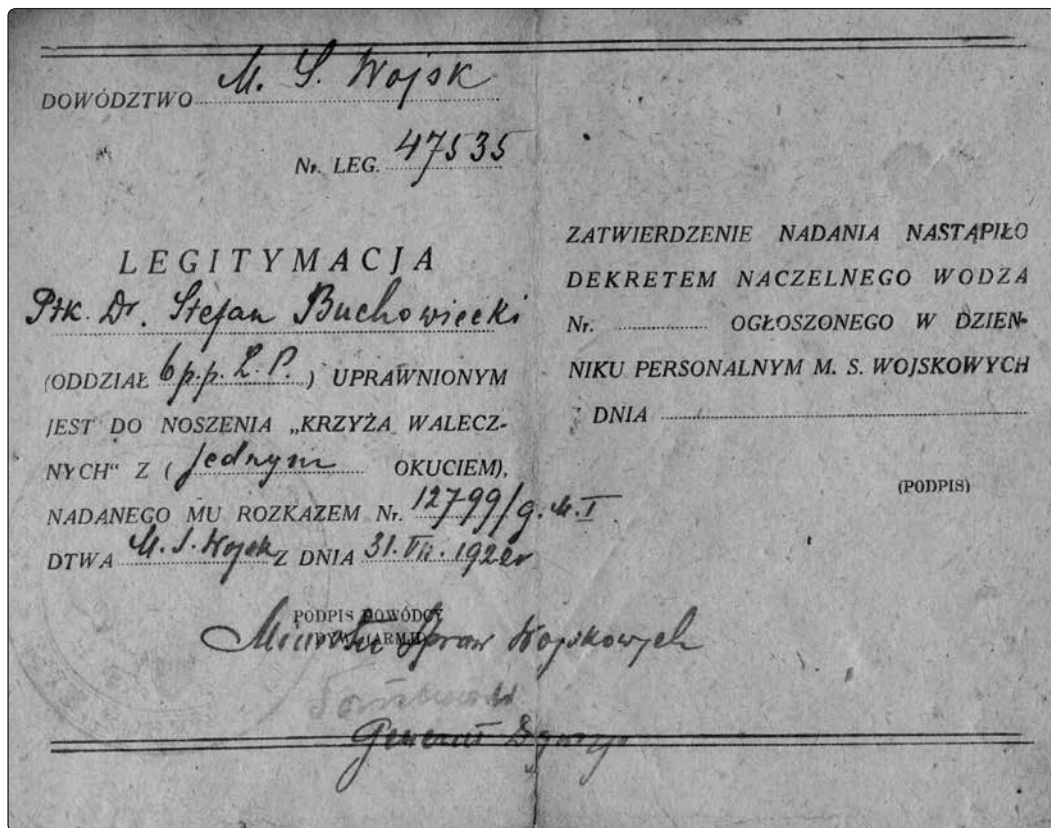 DOWÓDZTWO M. S. Wojsk
Nr. LEG. 47535
LEGITYMACJA
Płk. Dr. Stefan Buchowiecki
(ODDZIAŁ 6 p.p. L. P.) UPRAWNIONYM
JEST DO NOSZENIA „KRZYŻA WALECZ-
NYCH“ Z (jednym OKUCIEM),
NADANEGO MU ROZKAZEM Nr. 12799/g.M.I
DTWA M. S. Wojsk Z DNIA 31. VII. 1922r
PODPIS DOWÓDCY
Minister Spraw Wojskowych
Generał
ZATWIERDZENIE NADANIA NASTĄPIŁO
DEKRETEM NACZELNEGO WODZA
Nr. OGŁOSZONEGO W DZIEN-
NIKU PERSONALNYM M. S. WOJSKOWYCH
Z DNIA
(PODPIS)